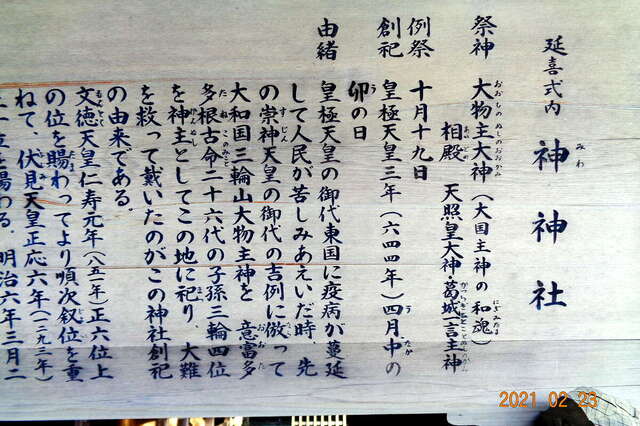 延喜式内 神神社
みわ
祭神 大物主大神(大国主神の和魂)
おおものぬしのおおかみ
にぎみたま
相殿 天照皇大神・葛城一言主神
あいどの
例祭 十月十九日
創祀 皇極天皇三年(六四四年)四月中の
うなか
卯の日
う
由緒 皇極天皇の御代東国に疫病が蔓延
して人民が苦しみあえいだ時、先
の崇神天皇の御代の吉例に倣って
すじん
大和国三輪山大物主神を 意富多
おおた
多根古命二十六代の子孫三輪四位
たねこのみこと
を神主としてこの地に祀り、大難
を救って戴いたのがこの神社創祀
の由来である。
文徳天皇仁寿元年(八五一年)正六位上
もんとく
の位を賜わってより順次叙位を重
たま
ねて、伏見天皇正応六年(一二九三年)
ふしみ
を賜わる。明治六年三月二
2021 02 23